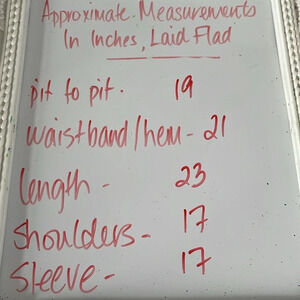 Approximate Measurements
In Inches, Laid Flad
pit to pit. 19
waistband/hem - 21
length - 23
Shoulders - 17
Sleeve - 17